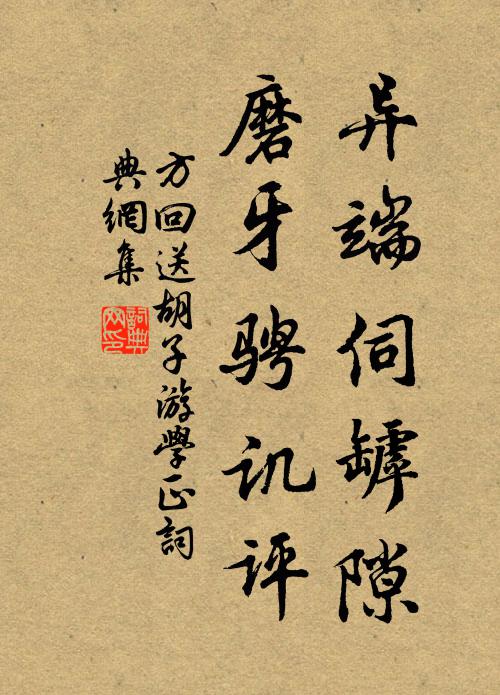 异端伺罅隙
磨牙骋讥评
方回送胡子游學正詞
典網集
詞典
网印